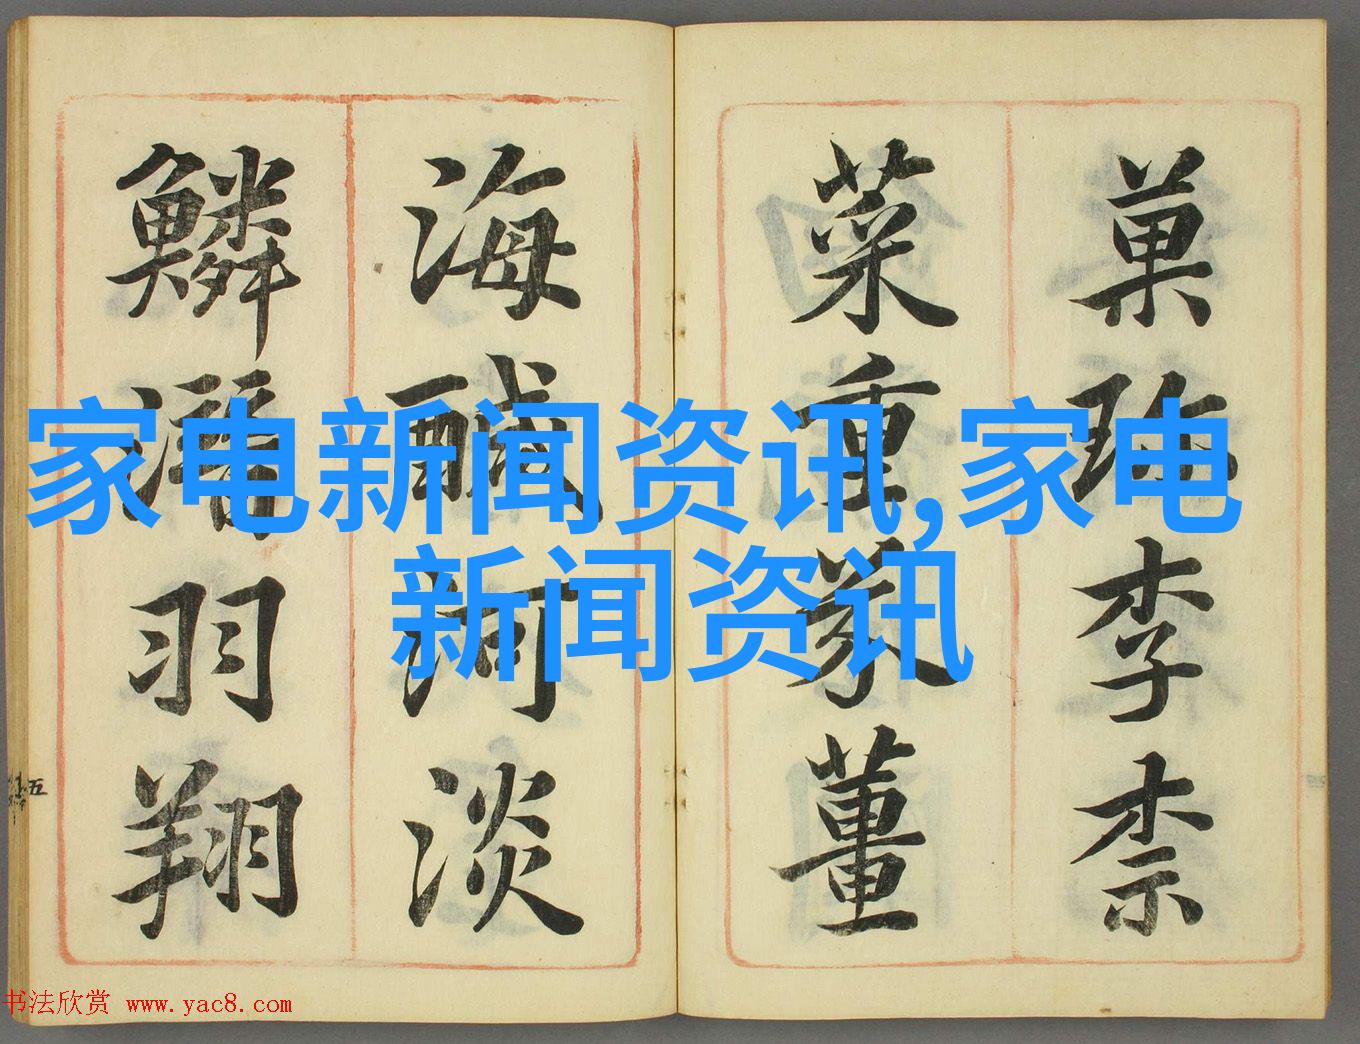 菓珎李柰
菜重芥薑
海醎河淡
鱗潛羽翔
五
家电新闻资讯,家电
新闻资讯
书法欣赏 www.yac8.com